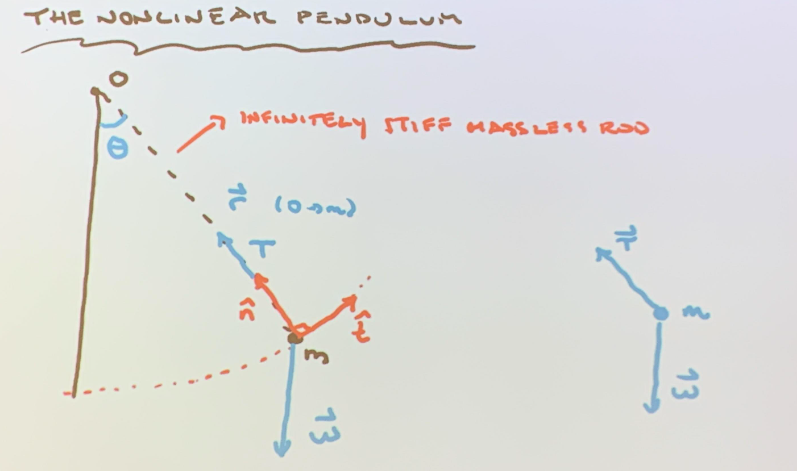 THE NONLINEAR PENDULUM
O
θ
INFINITELY STIFF MASSLESS ROD
r⃗ (O→m)
T
n̂
t̂
m
w⃗
T⃗
m
w⃗